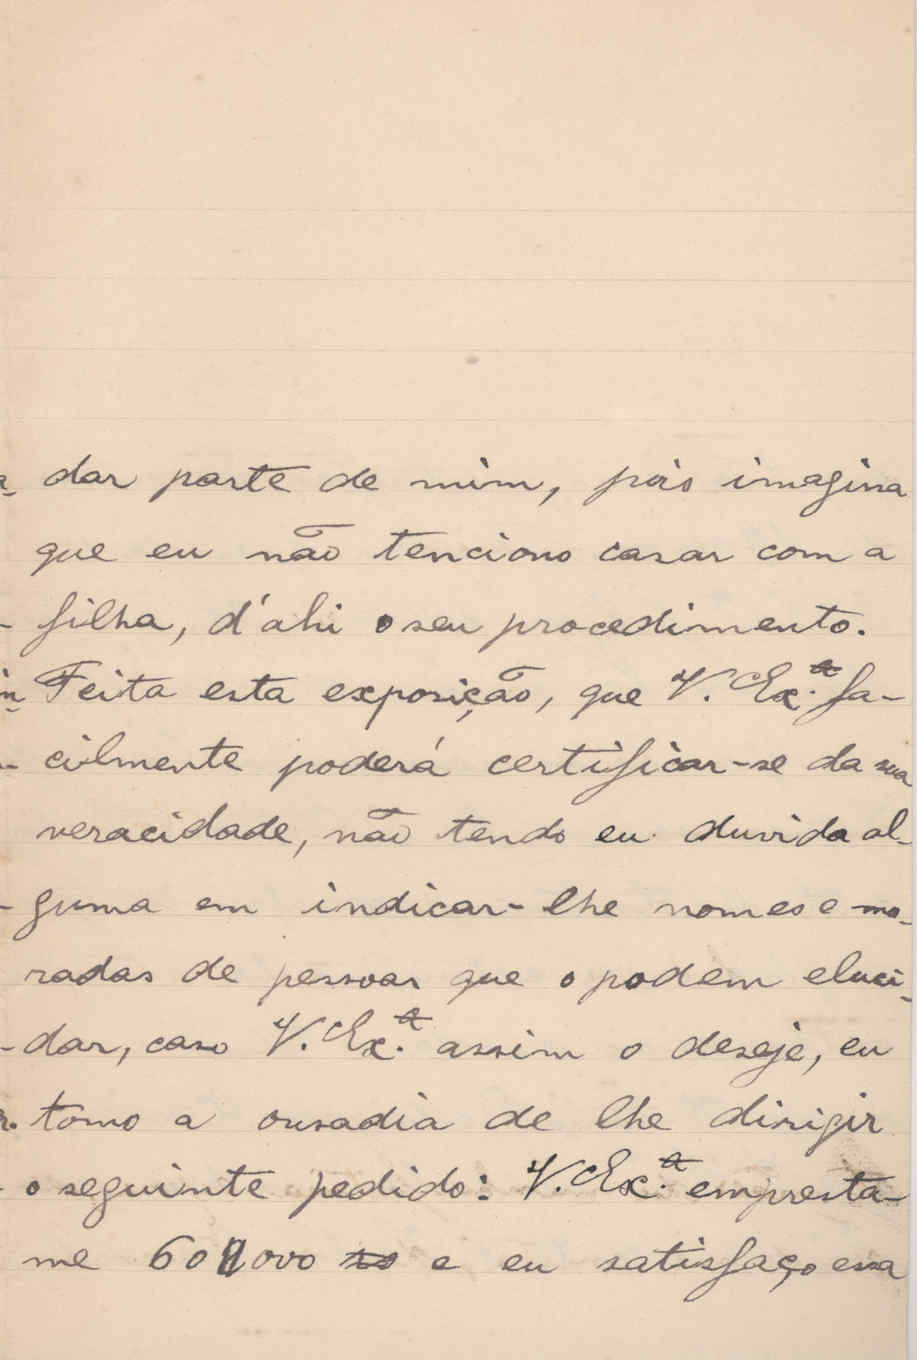 dar parte de mim, pois imagina
que eu não tenciono casar com a
filha, d'ahi o seu procedimento.
Feita esta exposição, que V. Ex.ª fa-
cilmente poderá certificar-se da sua
veracidade, não tendo eu duvida al-
guma em indicar-lhe nomes e mo-
radas de pessoas que o podem eluci-
dar, caso V. Ex.ª assim o deseje, eu
tomo a ousadia de lhe dirigir
o seguinte pedido: V. Ex.ª empresta-
me 60$000 rs e eu satisfaço essa